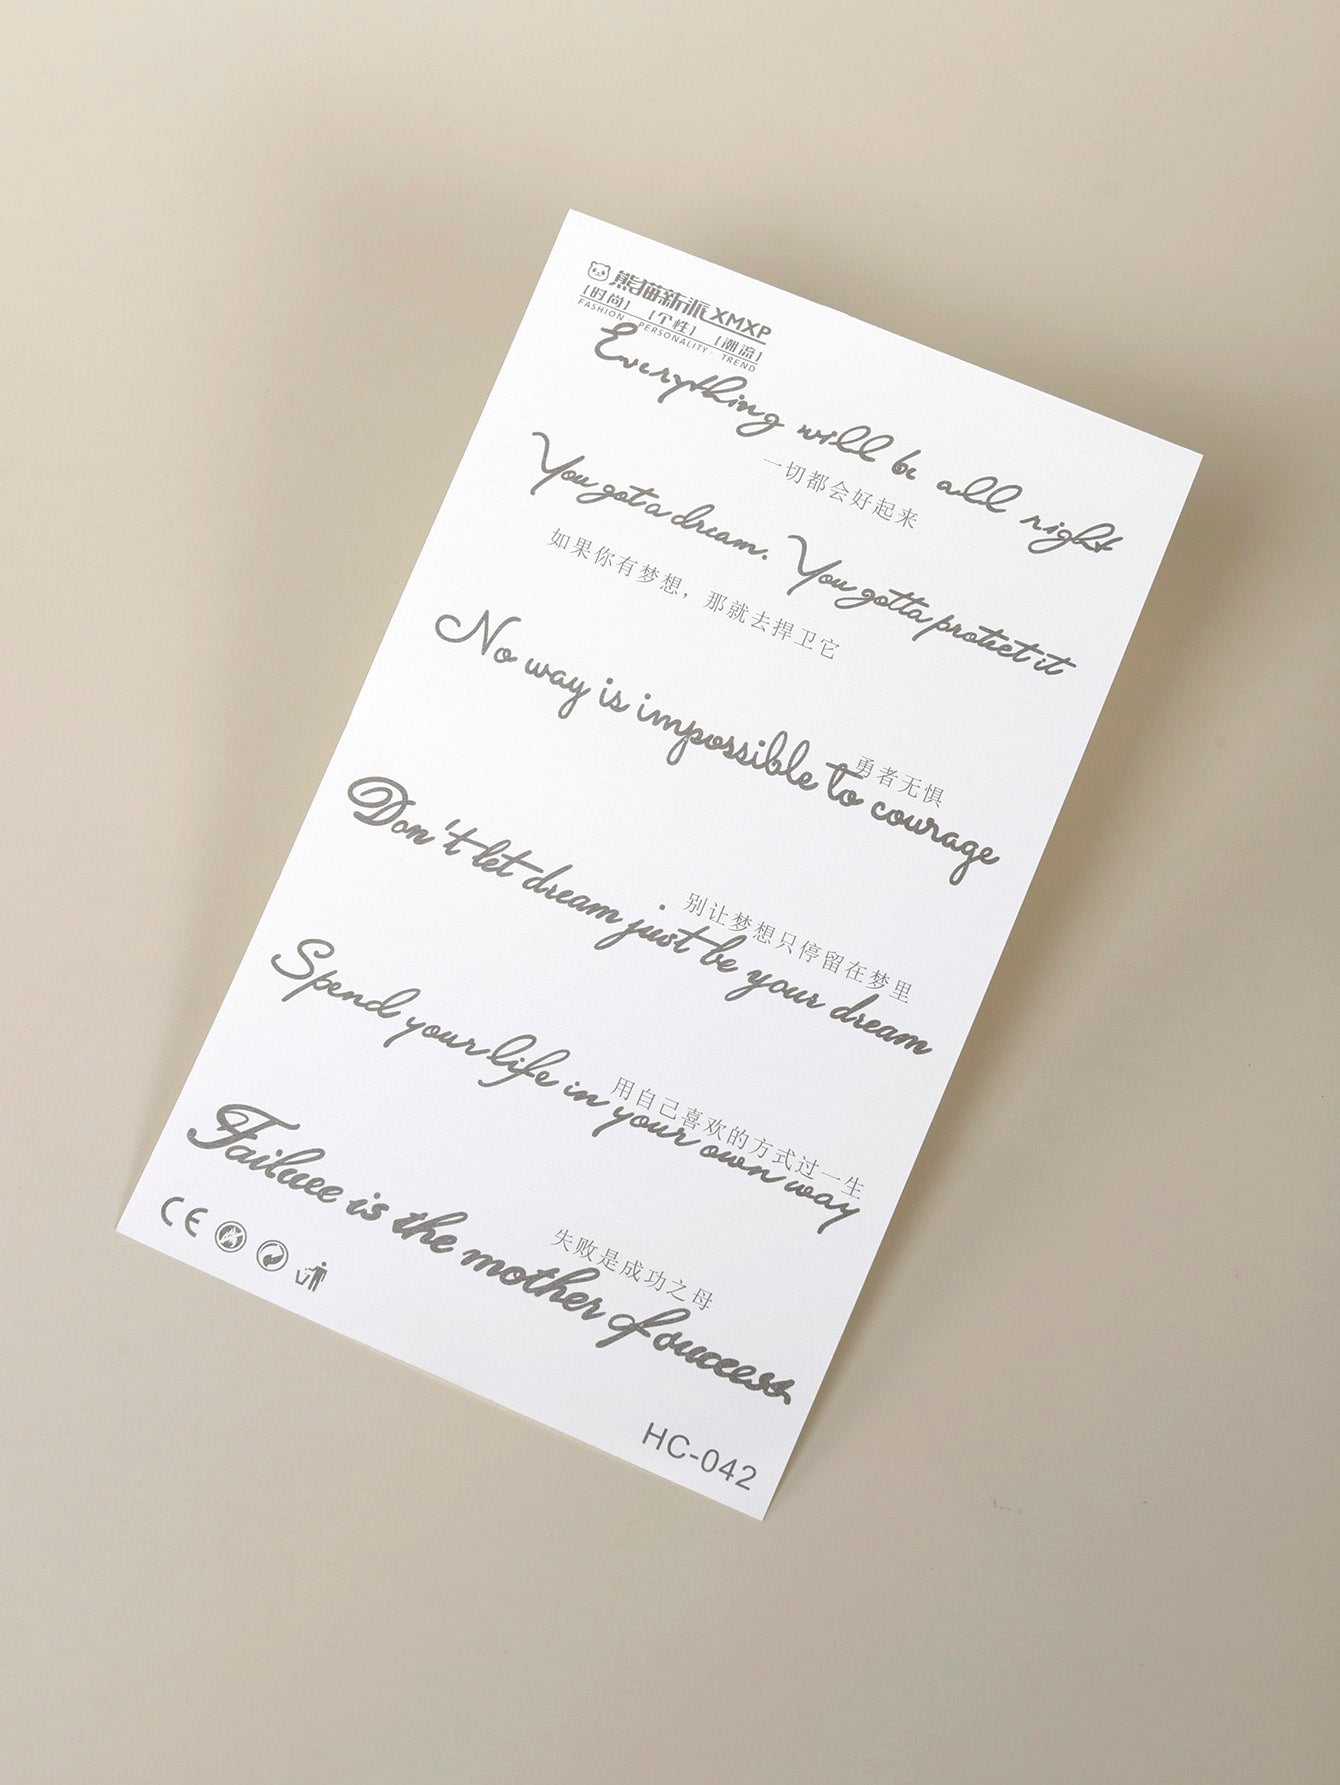 熊猫新派 XMXP
[时尚] [个性] [潮流]
FASHION · PERSONALITY · TREND
Everything will be all right
一切都会好起来
You got a dream. You gotta protect it
如果你有梦想，那就去捍卫它
勇者无惧
No way is impossible to courage
别让梦想只停留在梦里
Don't let dream just be your dream
用自己喜欢的方式过一生
Spend your life in your own way
失败是成功之母
Failure is the mother of success
CE
HC-042